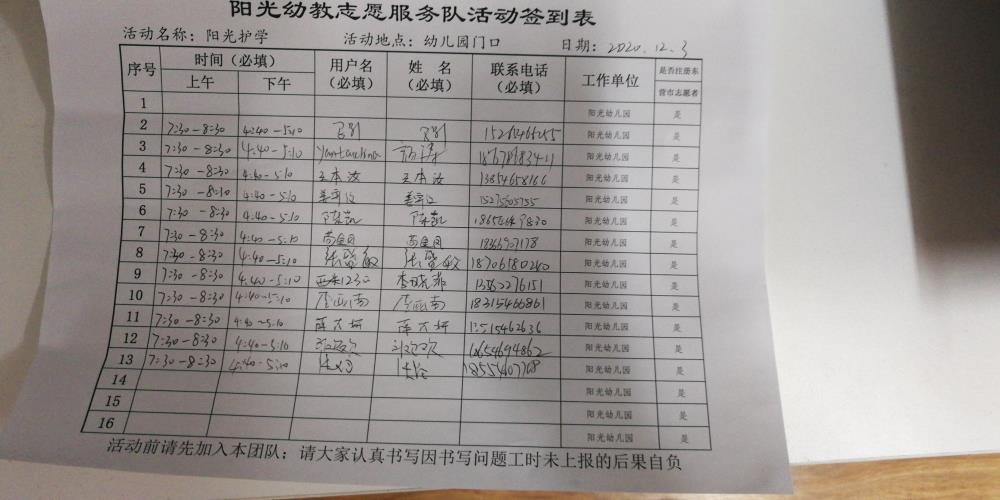 阳光幼教志愿服务队活动签到表
活动名称：阳光护学 活动地点：幼儿园门口 日期：2020.12.3
序号 时间（必填） 用户名（必填） 姓 名（必填） 联系电话（必填） 工作单位 是否注册东营市志愿者
上午 下午
1 阳光幼儿园 是
2 7:30-8:30 4:40-5:10 阳光幼儿园 是
3 7:30-8:30 4:40-5:10 阳光幼儿园 是
4 7:30-8:30 4:40-5:10 王本汝 王本汝 13854658166 阳光幼儿园 是
5 7:30-8:30 4:40-5:10 阳光幼儿园 是
6 7:30-8:30 4:40-5:10 陈凯 陈凯 阳光幼儿园 是
7 7:30-8:30 4:40-5:10 阳光幼儿园 是
8 7:30-8:30 4:40-5:10 张贤敏 张贤敏 18706580260 阳光幼儿园 是
9 7:30-8:30 4:40-5:10 阳光幼儿园 是
10 7:30-8:30 4:40-5:10 18315466861 阳光幼儿园 是
11 7:30-8:30 4:40-5:10 阳光幼儿园 是
12 7:30-8:30 4:40-5:10 阳光幼儿园 是
13 7:30-8:30 4:40-5:10 阳光幼儿园 是
14 阳光幼儿园 是
15 阳光幼儿园 是
16 阳光幼儿园 是
活动前请先加入本团队：请大家认真书写因书写问题工时未上报的后果自负